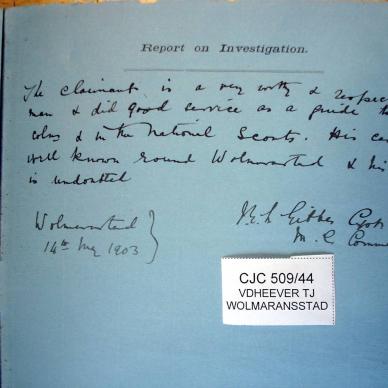 Report on Investigation.
The claimant is a very worthy & respec
man & did good service as a guide to
colms & in the National Scouts. His ca
well known round Wolmarastad & his
is undoubted
Wolmarastad
14th May 1903
Gibbs Capt
M. C Comm
CJC 509/44
VDHEEVER TJ
WOLMARANSSTAD